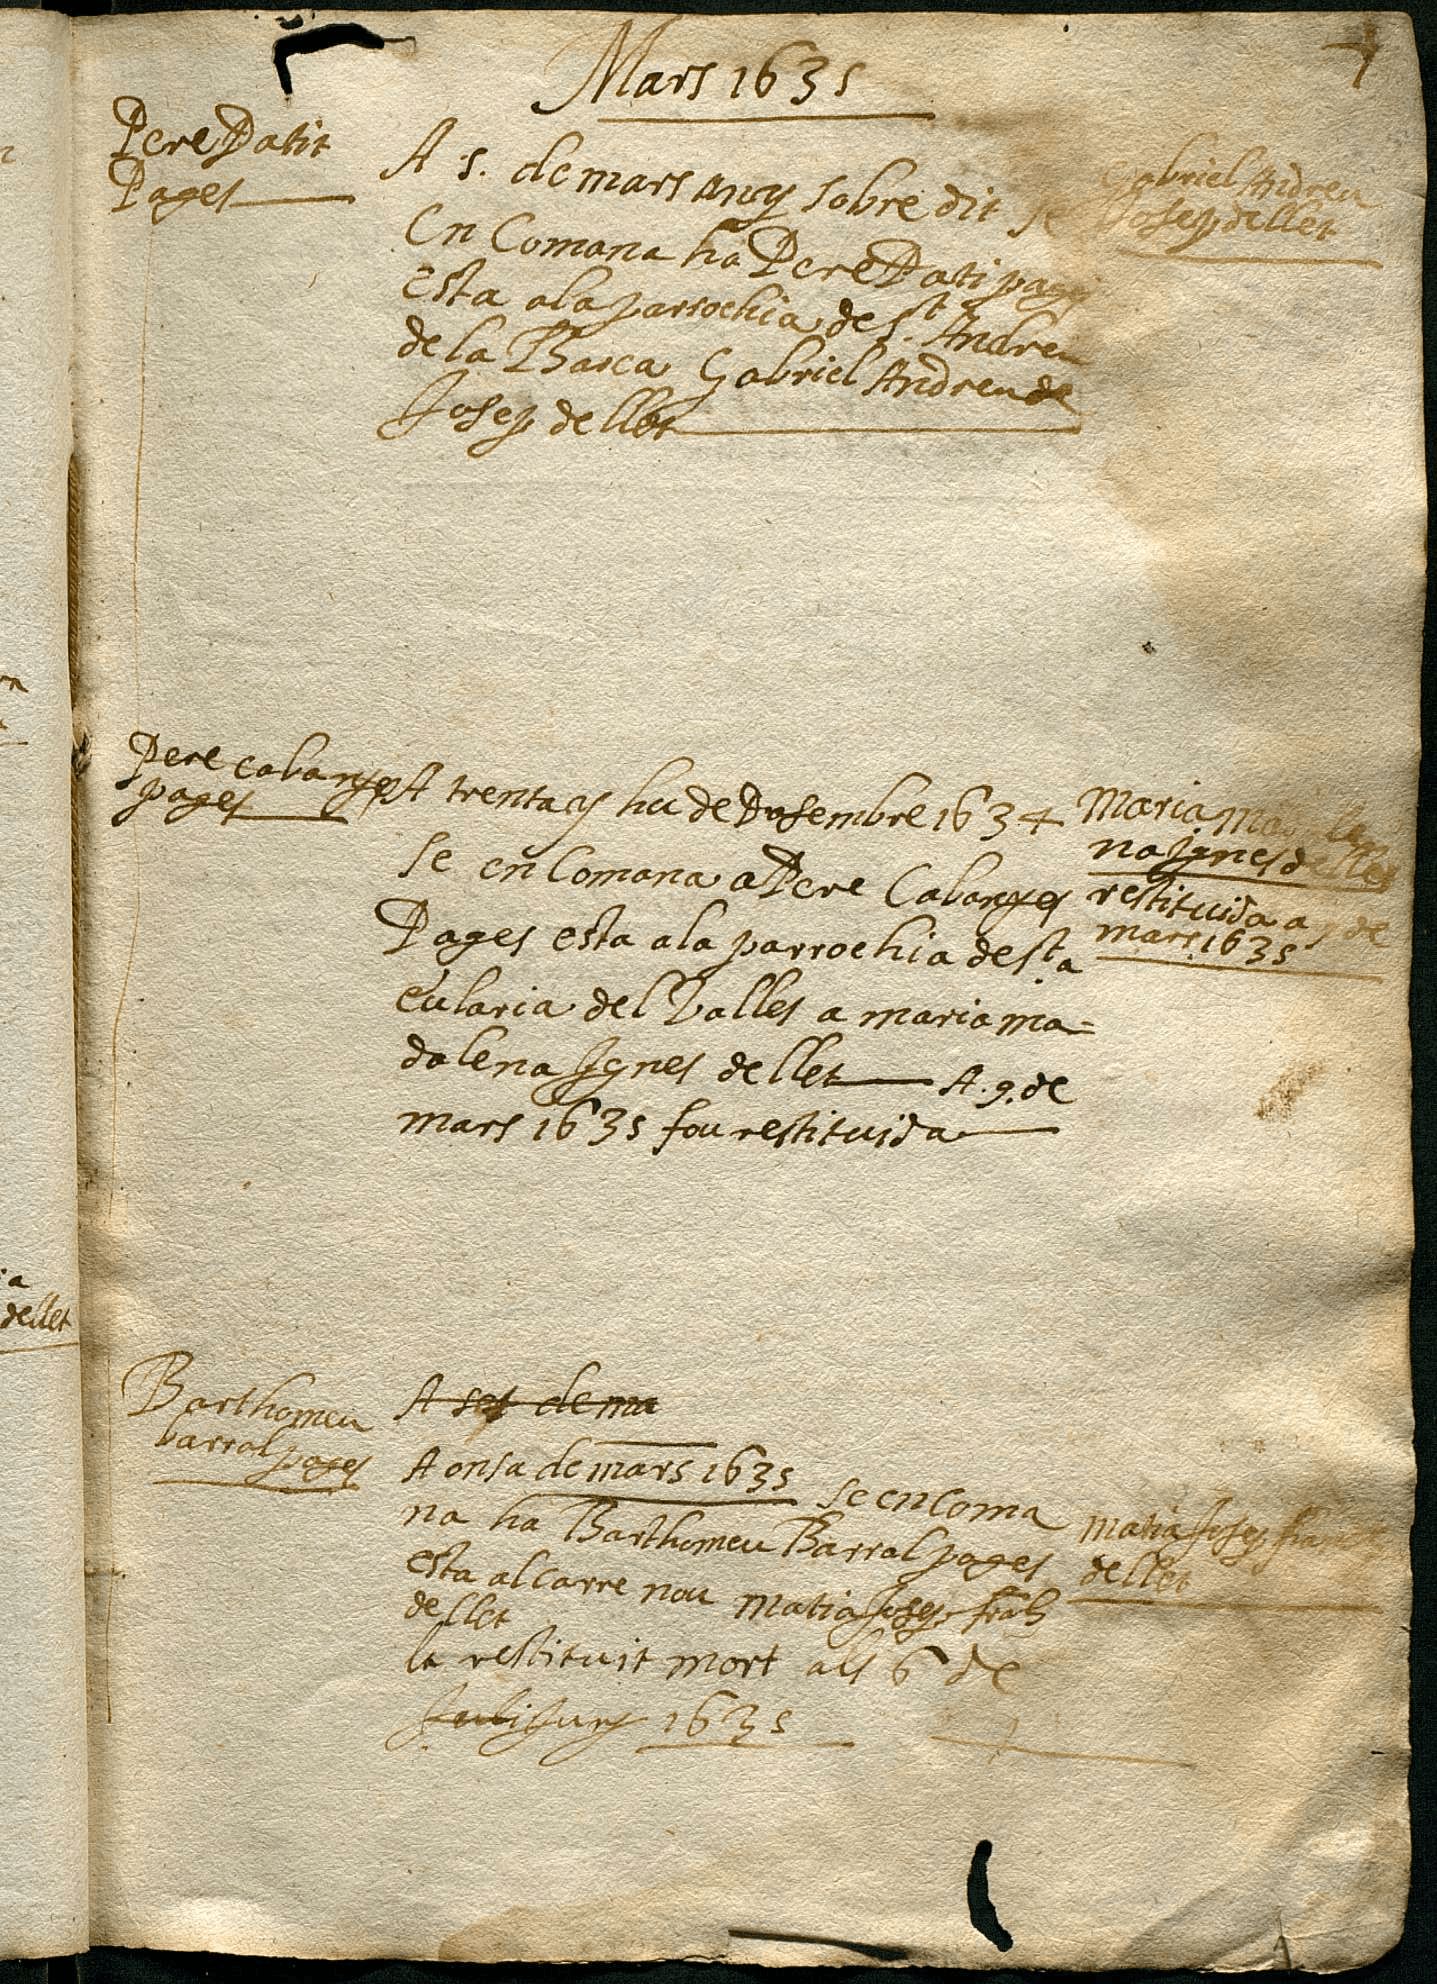 Mars 1635
Pere Patit
Pages
A 5. de mars any sobre dit se
En Comana ha Pere Pati pages
esta ala parrochia de st. Andreu
de la Barca Gabriel Andreu de
Josep de llet
Gabriel Andreu
Josep de llet
Pere cabanyes
pages
A trenta y hu de Desembre 1634
se en Comana a Pere Cabanyes
Pages esta ala parrochia de sta
eularia del Valles a maria ma=
dalena Ignes de llet A. 9. de
mars 1635 fou restituida
Maria Madale
na Ignes de llet
restituida a 9 de
mars 1635
Barthomeu
barral pages
A set de ma
A onsa de mars 1635 se en Coma
na ha Barthomeu Barral pages
esta al carre nou matia Josep
de llet
la restituit mort als 6 de
Juli Juny 1635
matia Josep
de llet
de llet